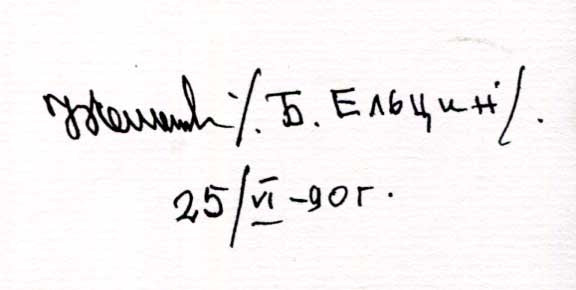 /. Б. Ельцин/.
25/VI-90г.